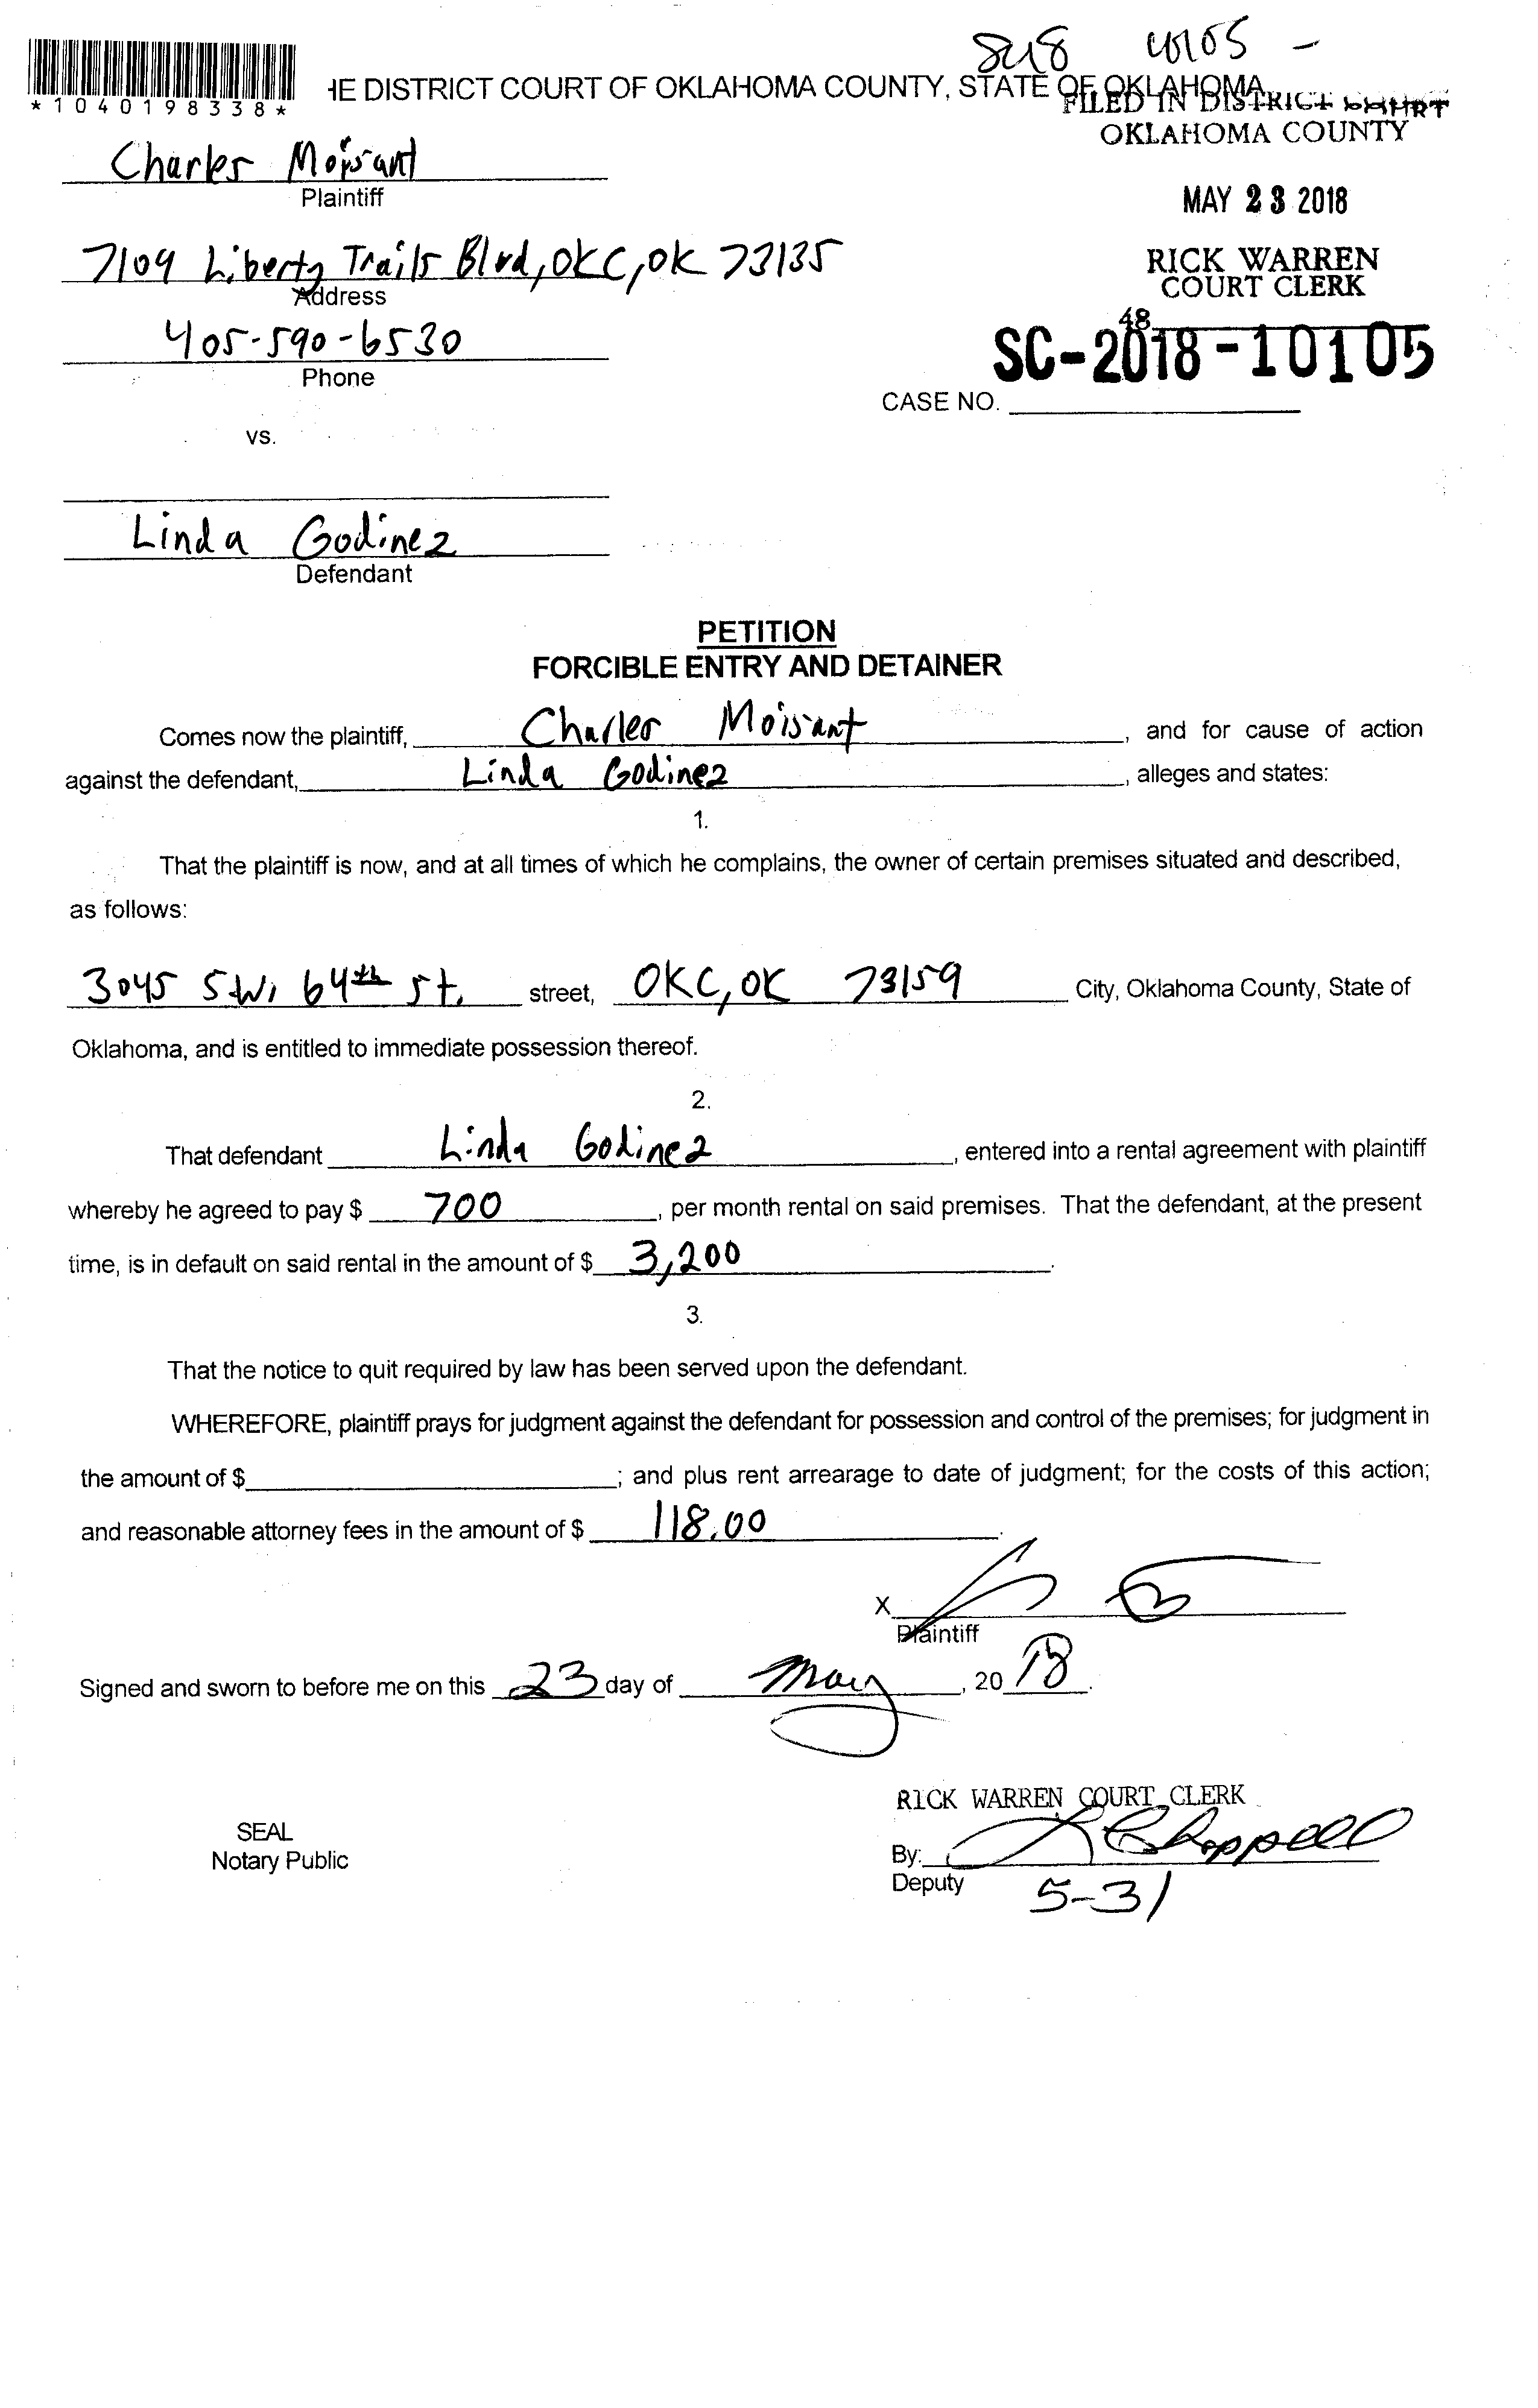 *1040198338*
HE DISTRICT COURT OF OKLAHOMA COUNTY, STATE OF OKLAHOMA
FILED IN DISTRICT COURT
OKLAHOMA COUNTY
Charles Moisant
Plaintiff
MAY 23 2018
7109 Liberty Trails Blvd, OKC, OK 73135
Address
RICK WARREN
COURT CLERK
405-590-6530
Phone
48
SC-2018-10105
CASE NO.
vs.
Linda Godinez
Defendant
PETITION
FORCIBLE ENTRY AND DETAINER
Comes now the plaintiff, Charles Moisant, and for cause of action
against the defendant, Linda Godinez, alleges and states:
1.
That the plaintiff is now, and at all times of which he complains, the owner of certain premises situated and described,
as follows:
3045 S.W. 64th St. street, OKC, OK 73159 City, Oklahoma County, State of
Oklahoma, and is entitled to immediate possession thereof.
2.
That defendant Linda Godinez, entered into a rental agreement with plaintiff
whereby he agreed to pay $ 700, per month rental on said premises. That the defendant, at the present
time, is in default on said rental in the amount of $ 3,200.
3.
That the notice to quit required by law has been served upon the defendant.
WHEREFORE, plaintiff prays for judgment against the defendant for possession and control of the premises; for judgment in
the amount of $ ; and plus rent arrearage to date of judgment; for the costs of this action;
and reasonable attorney fees in the amount of $ 118.00.
X
Plaintiff
Signed and sworn to before me on this 23 day of May, 20 18.
RICK WARREN COURT CLERK
SEAL
Notary Public
By: Chappell
Deputy
5-31